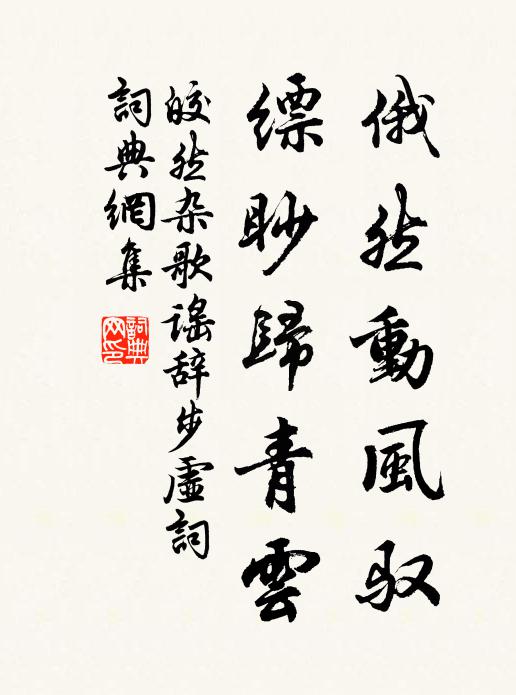 俄然動風驭
缥眇歸青雲
皎然杂歌謠辞步虛詞
詞典網集
詞典网印